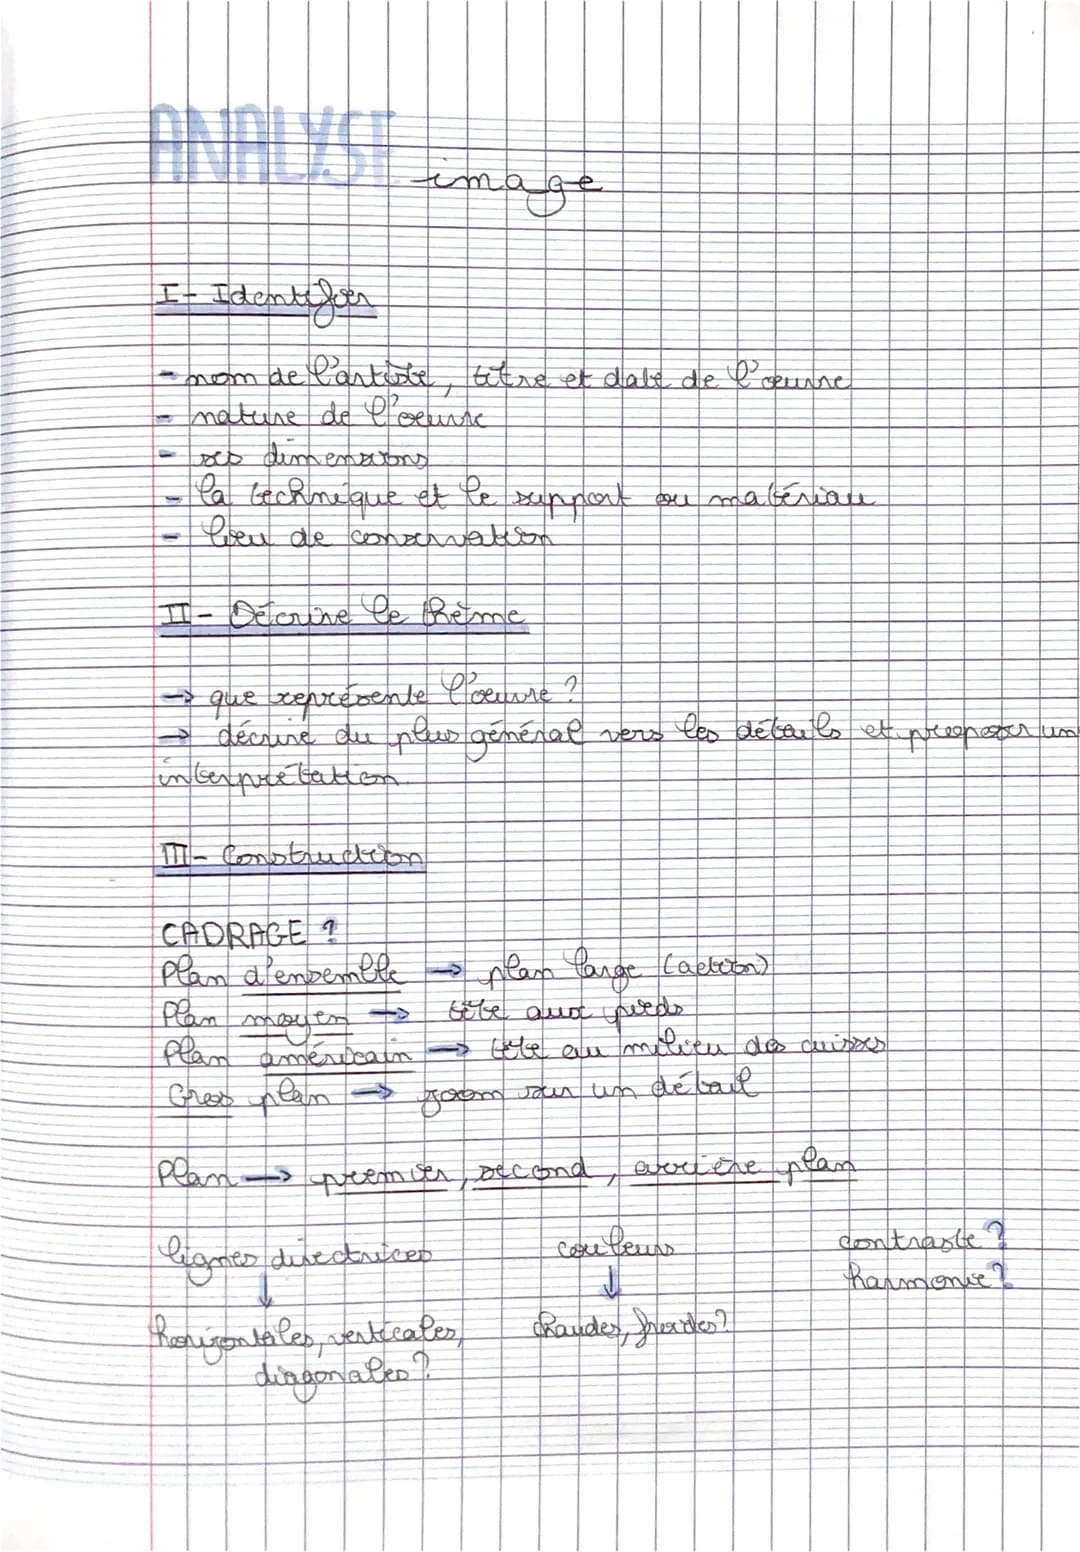 ANALYSE image
I- Identifier
- nom de l'artiste, titre et date de l'œuvre
- nature de l'œuvre
- ses dimensions
- la technique et le support ou matériau
- lieu de conservation
II- Décrire le thème
→ que représente l'œuvre ?
→ décrire du plus général vers les détails et proposer un
interprétation
III- Construction
CADRAGE ?
Plan d'ensemble → plan large (action)
Plan moyen → tête aux pieds
Plan américain → tête au milieu des cuisses
Gros plan → zoom sur un détail
Plan → premier, second, arrière plan
lignes directrices couleurs contraste ?
↓ ↓ harmonie ?
horizontales, verticales, chaudes, froides ?
diagonales ?